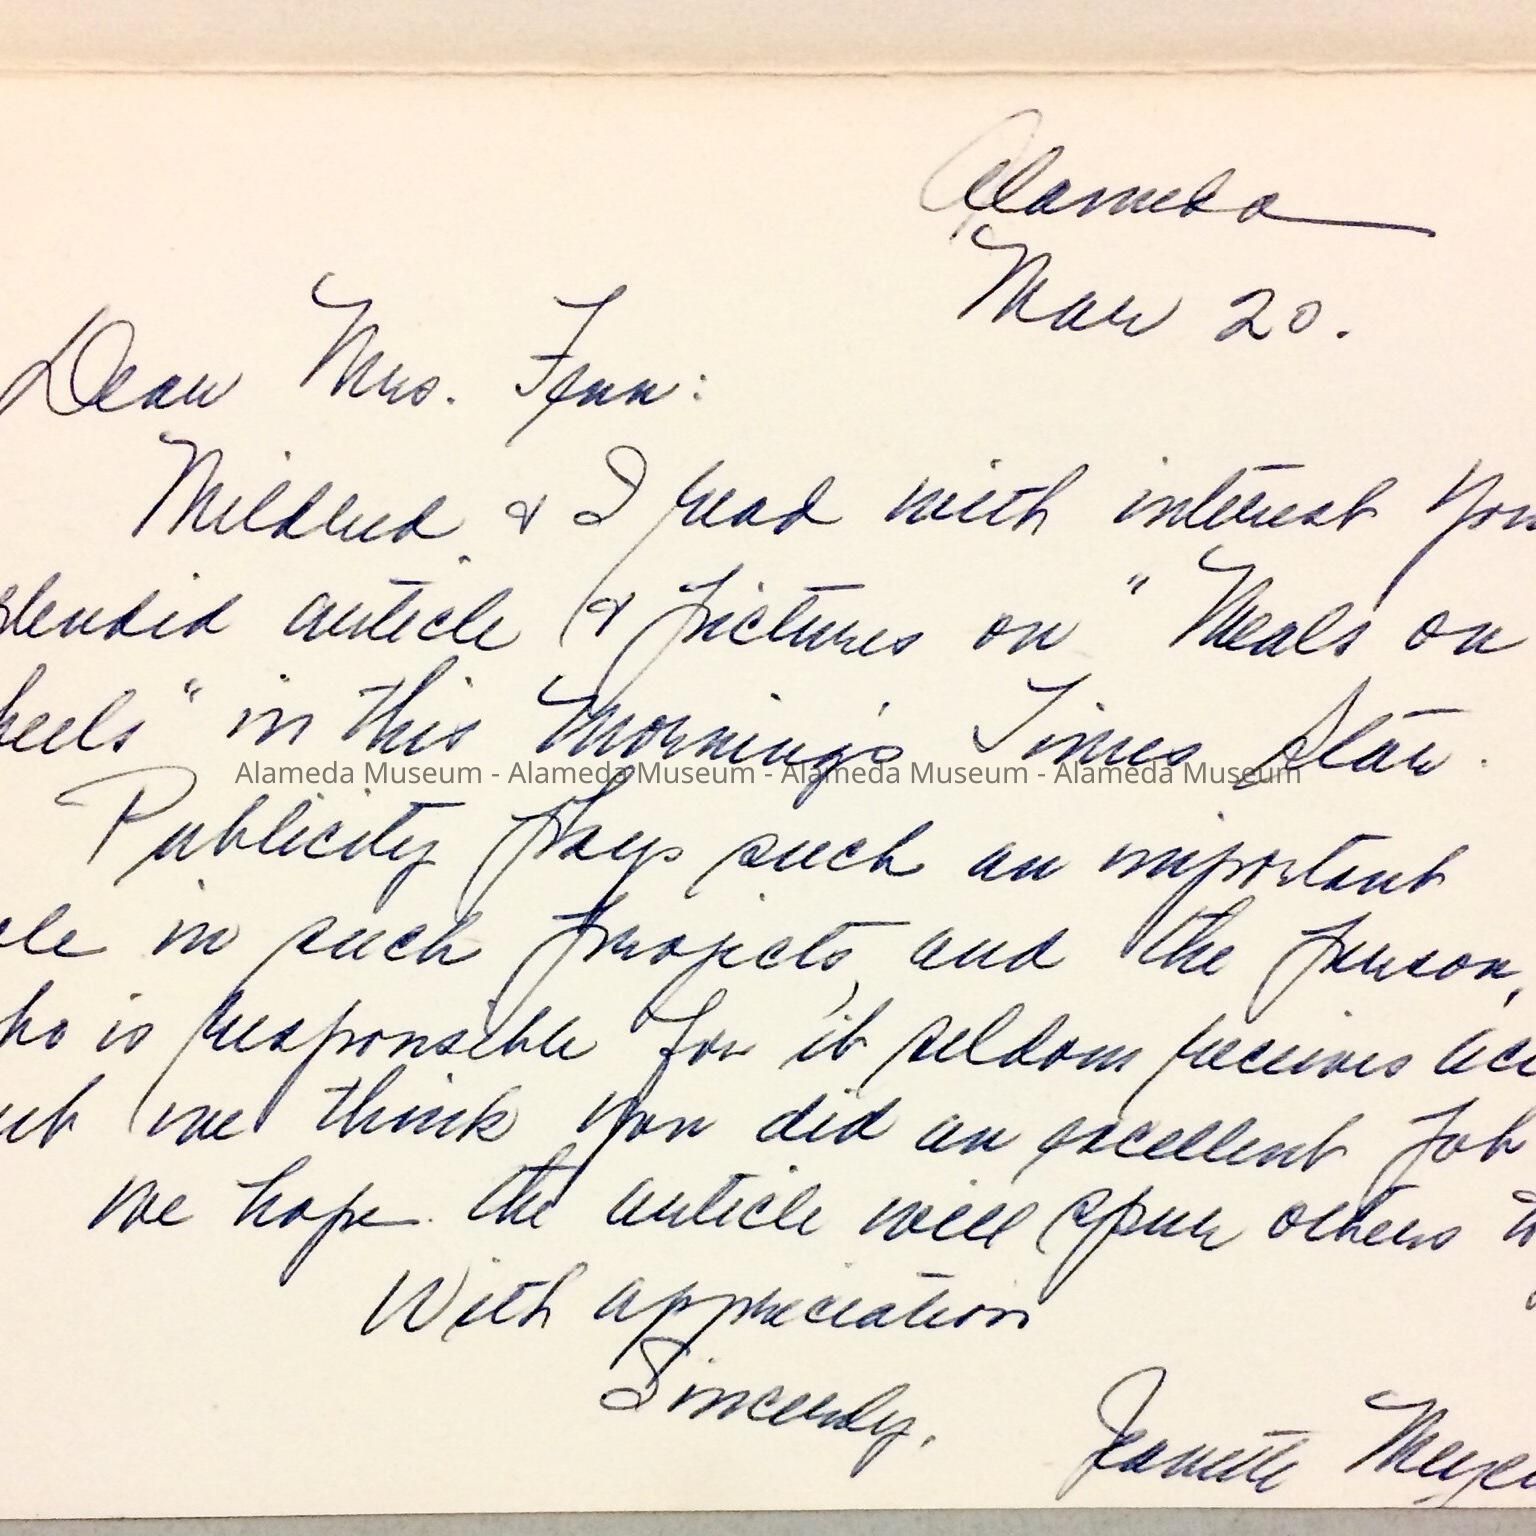 Alameda
Mar 20.
Dear Mrs. Fynn:
Mildred & I read with interest you
lendid article & pictures on "Meals on
heels" in this morning's Times Star.
Alameda Museum - Alameda Museum - Alameda Museum - Alameda Museum
Publicity plays such an important
ole in such projects, and the person,
ho is responsible for it seldom receives acc
ut we think you did an excellent job
we hope the article will spur others to
With appreciation
Sincerely,
Jeanette Meye